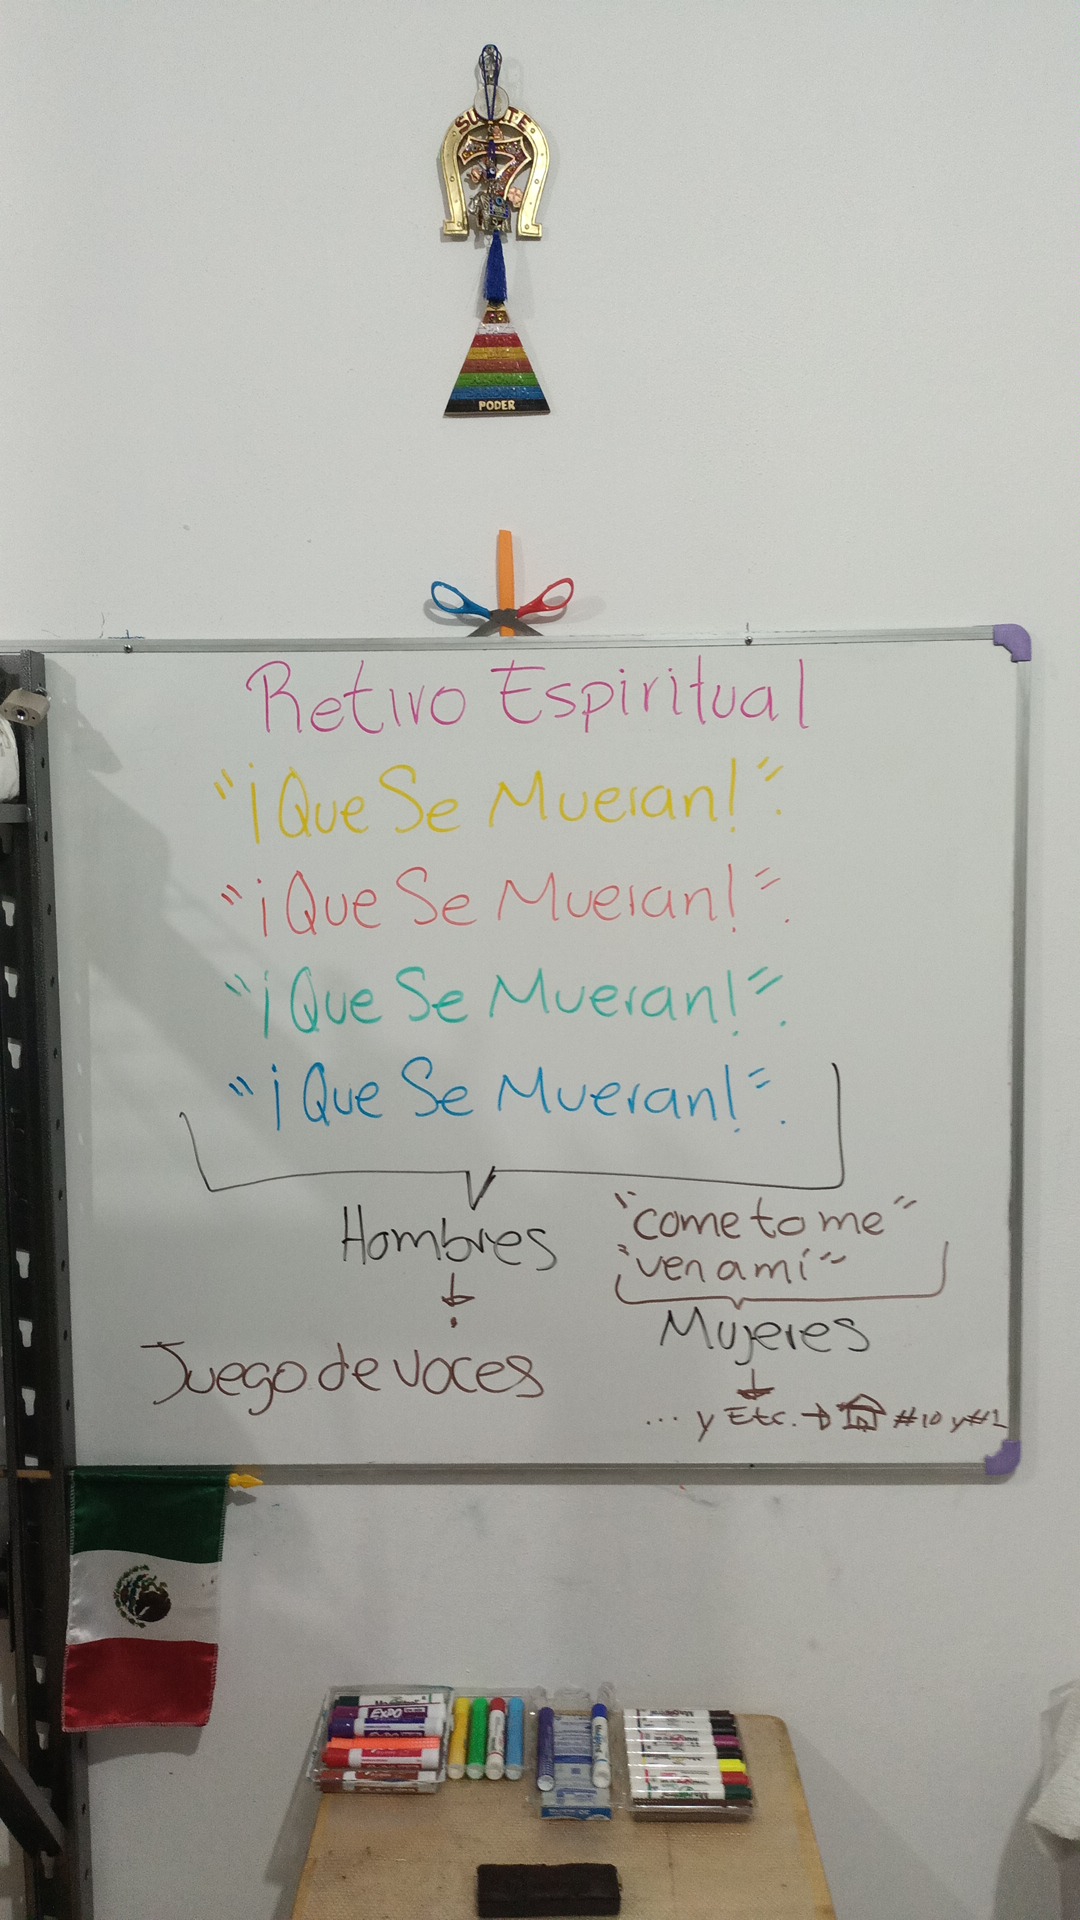 SUERTE
7
PODER
Retiro Espiritual
"¡Que Se Mueran!".
"¡Que Se Mueran!".
"¡Que Se Mueran!".
"¡Que Se Mueran!".
Hombres
Juego de voces
"come to me"
"ven a mí"
Mujeres
... y Etc. → #10 y #1
EXPO